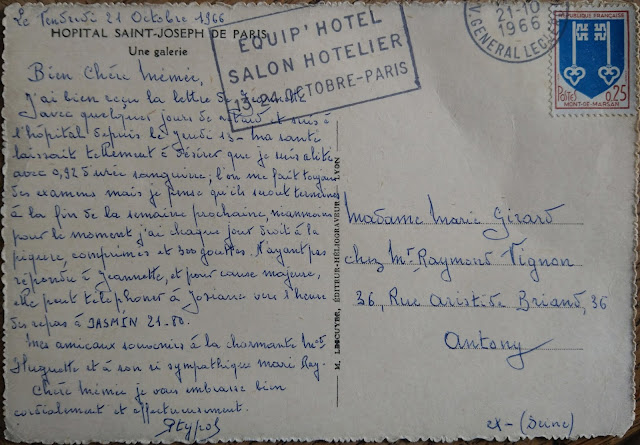 Le Vendredi 21 Octobre 1966
HOPITAL SAINT-JOSEPH DE PARIS
Une galerie
Bien Chère Mémée,
J'ai bien reçu la lettre de Jeannette
avec quelques jours de retard et suis à
l'hôpital depuis le jeudi 13 - ma santé
laissait tellement à désirer que je suis alité
avec 0,92 d'urée sanguine, l'on me fait toujours
des examens mais je pense qu'ils seront terminés
à la fin de la semaine prochaine, néanmoins
pour le moment j'ai chaque jour droit à la
piqûre, comprimés et 300 gouttes. N'ayant pas
répondu à Jeannette, et pour cause majeure,
elle peut téléphoner à Josiane vers l'heure
des repas à JASMIN 21-80.
Mes amicaux souvenirs à la charmante Me
Huguette et à son si sympathique mari Ray-
Chère Mémée je vous embrasse bien
cordialement et affectueusement.
EQUIP'HOTEL
SALON HOTELIER
13-24 OCTOBRE-PARIS
21-10
1966
V. GENERAL LECLERC
REPUBLIQUE FRANÇAISE
Postes 0,25
MONT-DE-MARSAN
M. LESCUYER, ÉDITEUR-HÉLIOGRAVEUR LYON
Madame Marie Girard
chez Mr Raymond Vignon
36, Rue Aristide Briand, 36
Antony
(Seine)